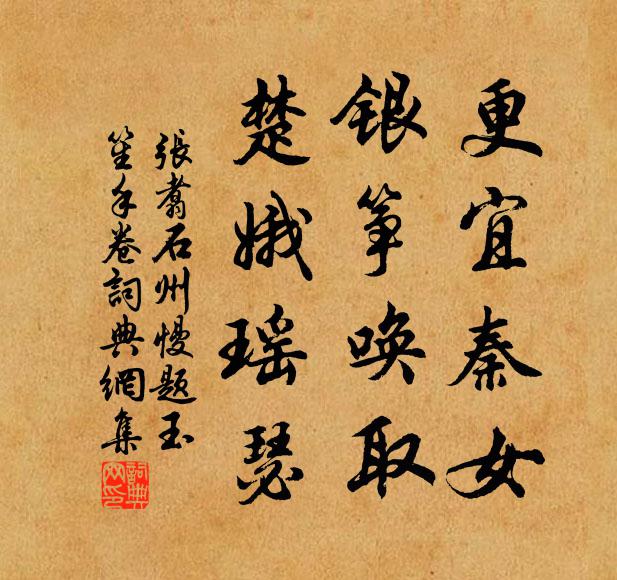 更宜秦女
银筝唤取
楚娥瑶瑟
張翥石州慢题玉
笙手卷詞典網集
詞典
网印